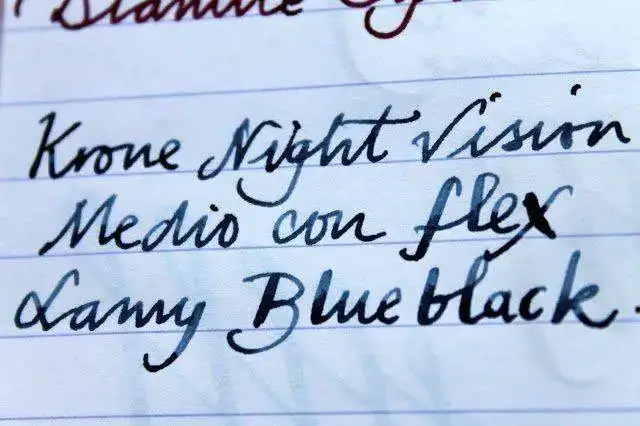 Diamine
Krone Night Vision
Medio con flex
Lamy Blue black.